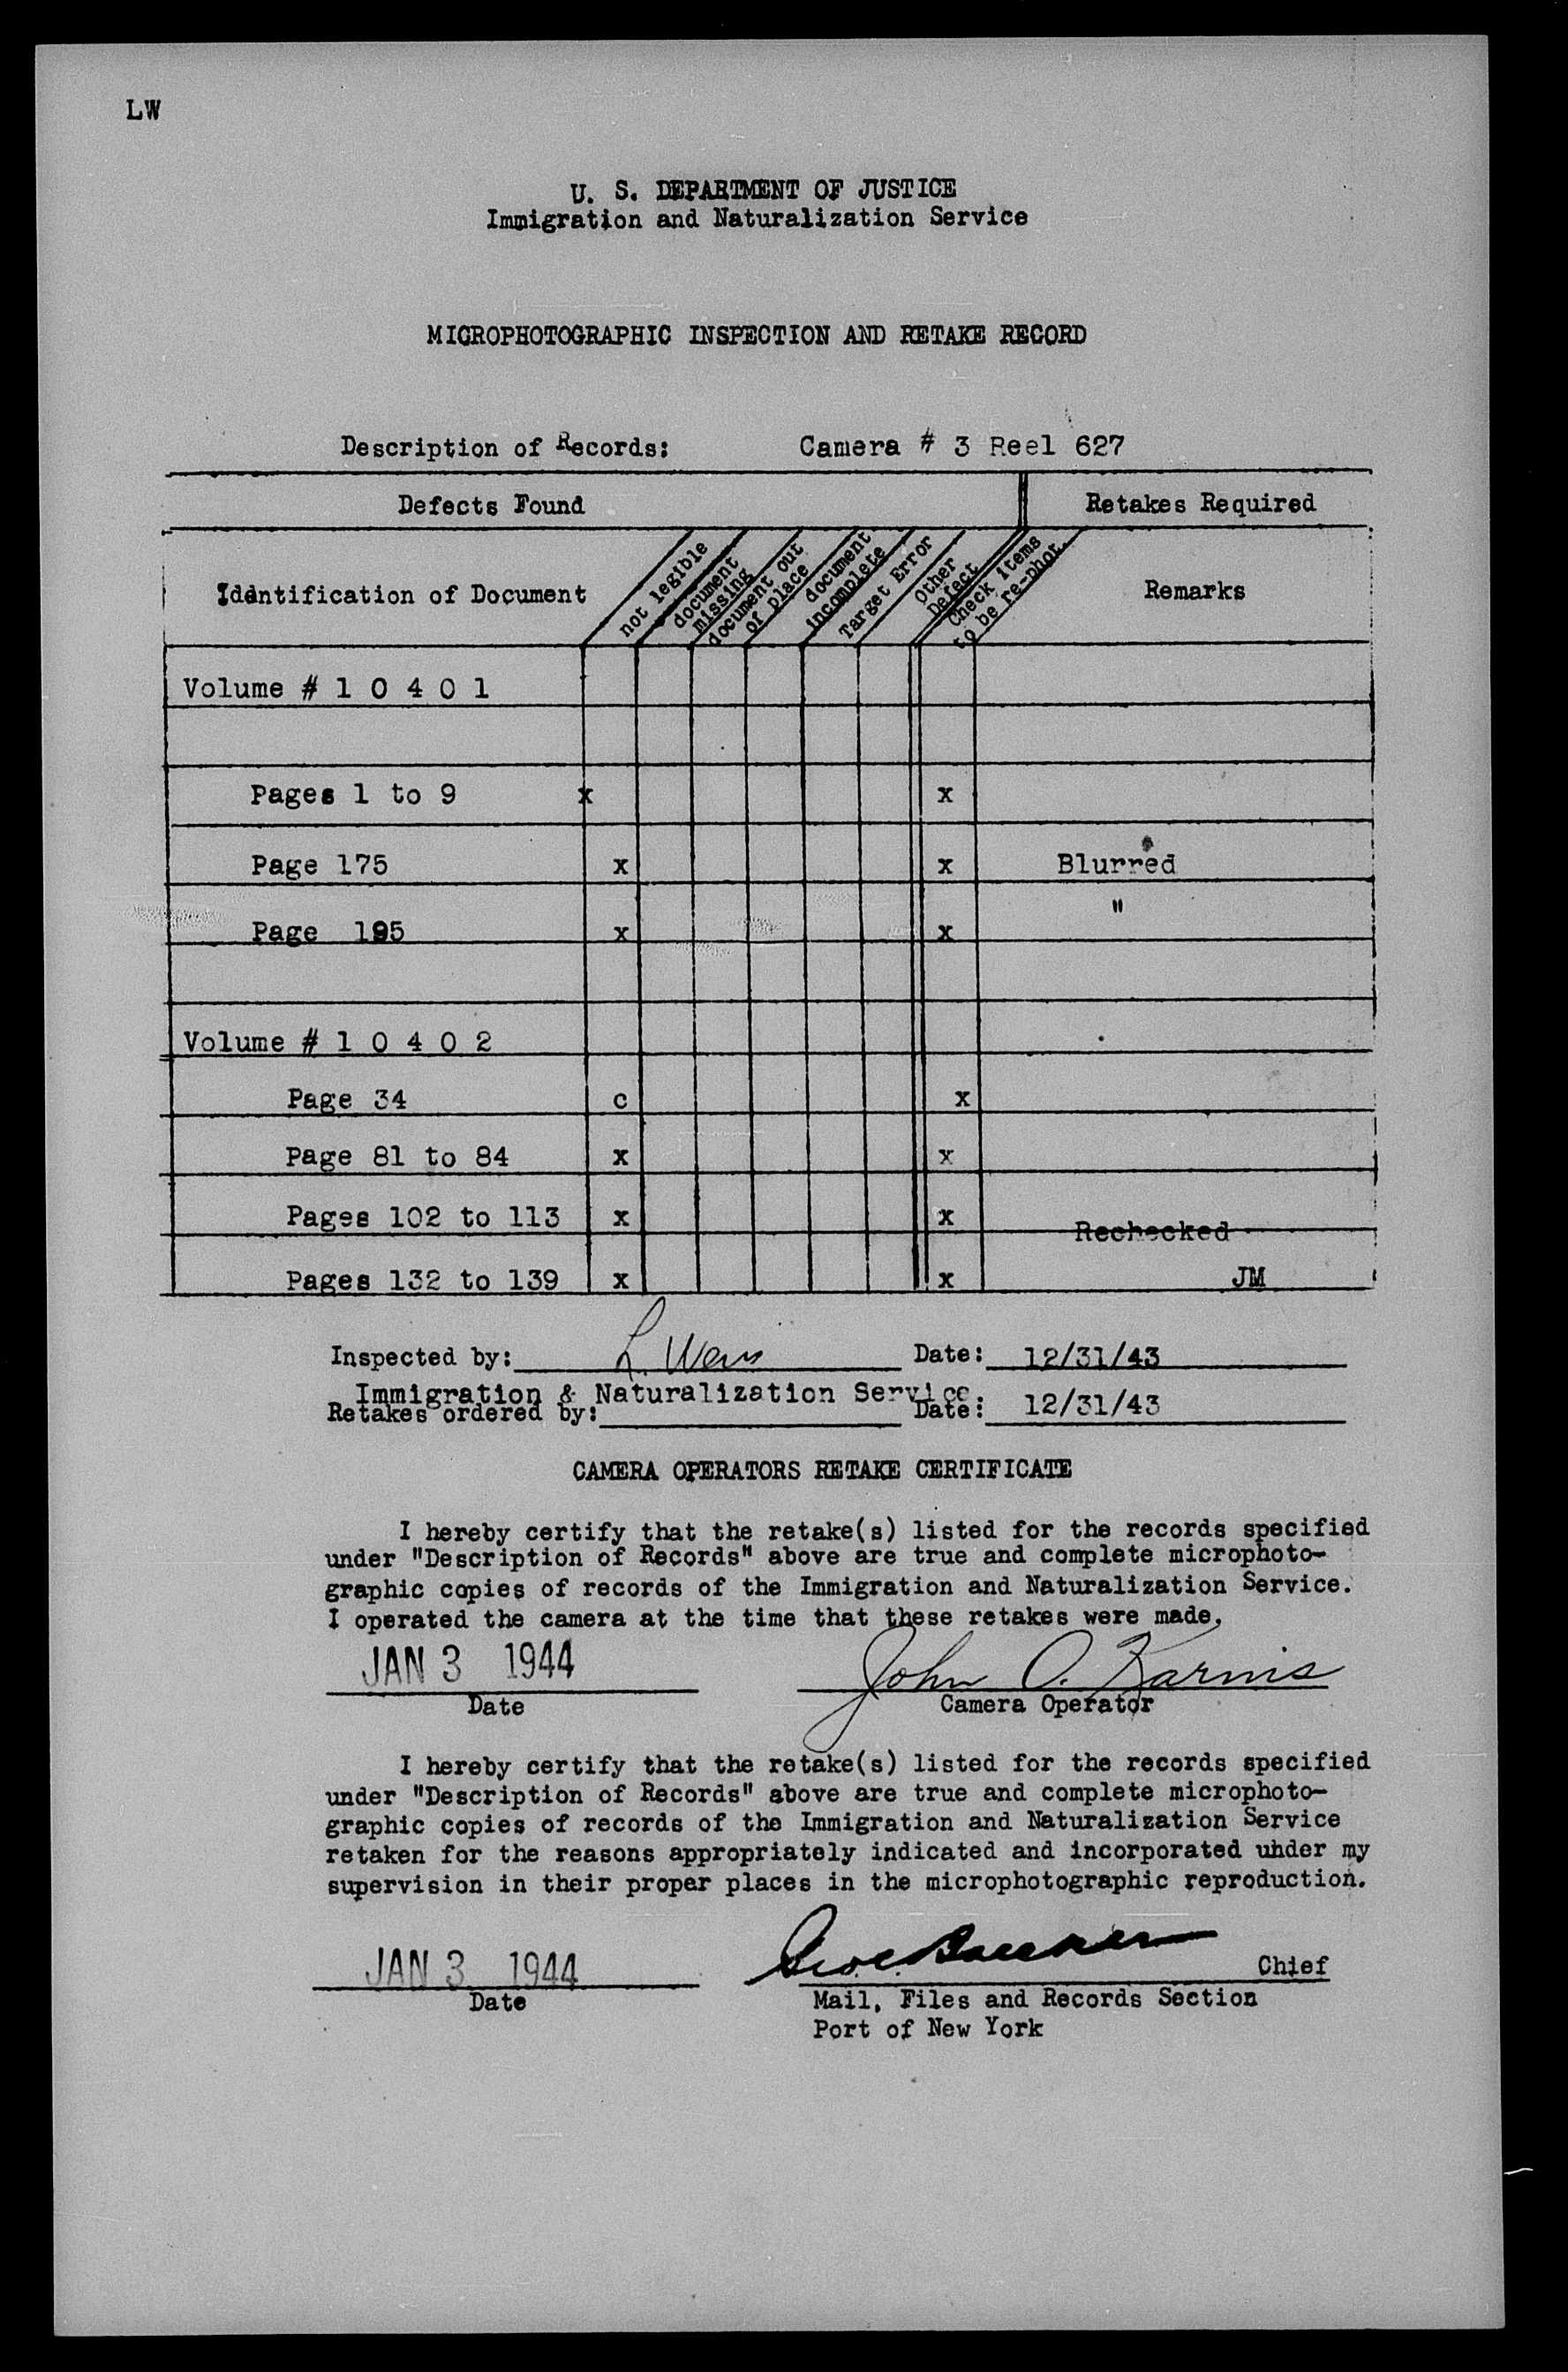 LW
U. S. DEPARTMENT OF JUSTICE
Immigration and Naturalization Service
MICROPHOTOGRAPHIC INSPECTION AND RETAKE RECORD
Description of Records: Camera # 3 Reel 627
Defects Found Retakes Required
Identification of Document not legible document missing document out of place document incomplete Target Error Other Defect Check items to be re-phot. Remarks
Volume # 1 0 4 0 1
Pages 1 to 9 x x
Page 175 x x Blurred
Page 195 x x "
Volume # 1 0 4 0 2
Page 34 c x
Page 81 to 84 x x
Pages 102 to 113 x x Rechecked
Pages 132 to 139 x x JM
Inspected by: L. Date: 12/31/43
Immigration & Naturalization Service.
Retakes ordered by: Date: 12/31/43
CAMERA OPERATORS RETAKE CERTIFICATE
I hereby certify that the retake(s) listed for the records specified
under "Description of Records" above are true and complete microphoto-
graphic copies of records of the Immigration and Naturalization Service.
I operated the camera at the time that these retakes were made.
JAN 3 1944 John O. Karnis
Date Camera Operator
I hereby certify that the retake(s) listed for the records specified
under "Description of Records" above are true and complete microphoto-
graphic copies of records of the Immigration and Naturalization Service
retaken for the reasons appropriately indicated and incorporated uhder my
supervision in their proper places in the microphotographic reproduction.
JAN 3 1944 Chief
Date Mail, Files and Records Section
Port of New York